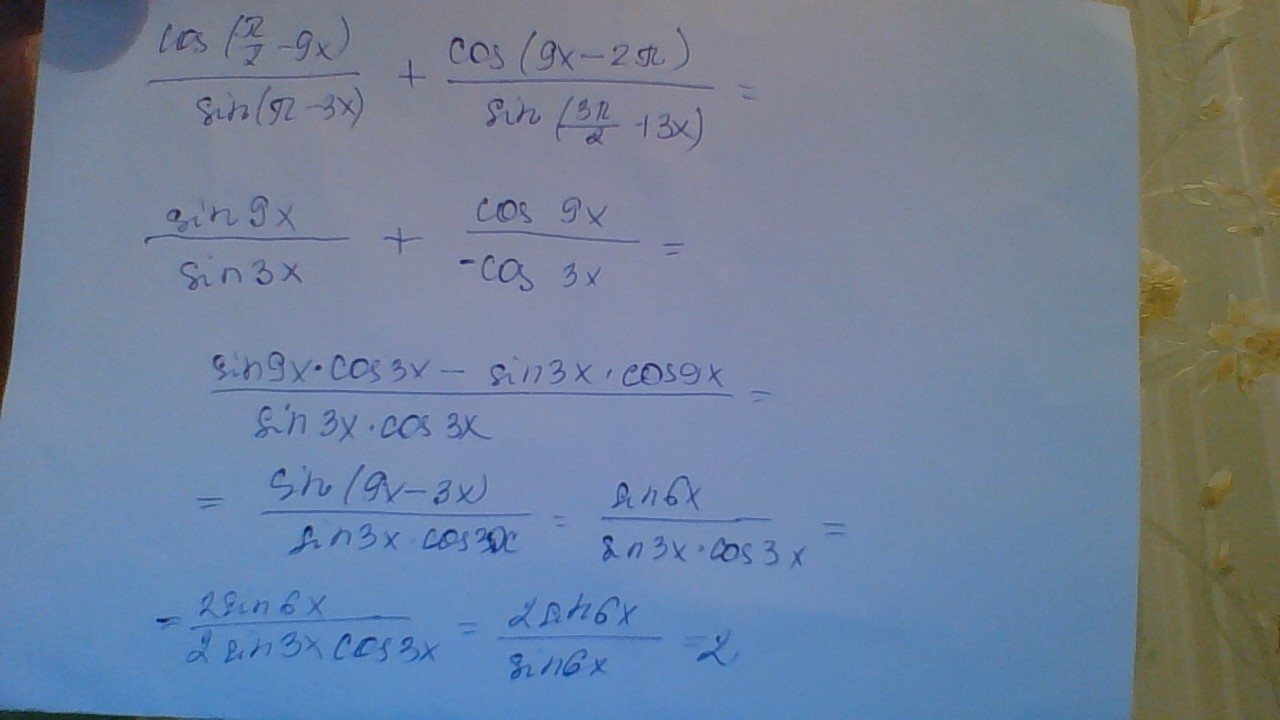 cos(π/2 - 9x) / sin(π - 3x) + cos(9x - 2π) / sin(3π/2 + 3x) =
sin 9x / sin 3x + cos 9x / -cos 3x =
sin 9x · cos 3x - sin 3x · cos 9x / sin 3x · cos 3x =
= sin(9x - 3x) / sin 3x · cos 3x = sin 6x / sin 3x · cos 3x =
= 2 sin 6x / 2 sin 3x cos 3x = 2 sin 6x / sin 6x = 2